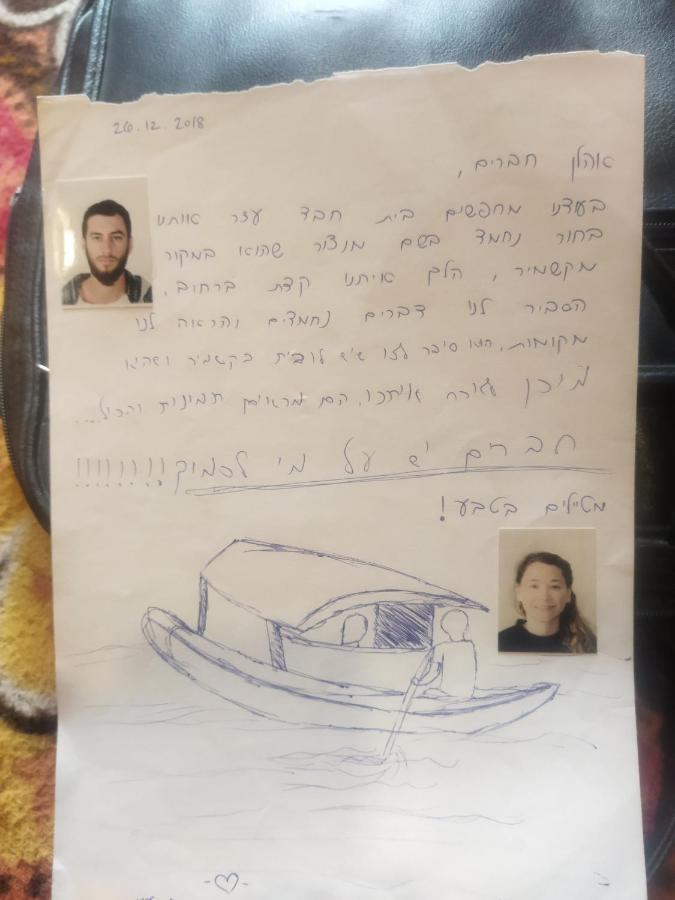 26.12.2018
אהלן חברים,
בעודנו מחפשים בית חבד עזר אותנו
בחור נחמד בשם מנצור שהוא במקור
מקשמיר, הלך איתנו קצת ברחוב,
הסביר לנו דברים נחמדים והראה לנו
מקומות, סיפר לנו שיש לו בית בקשמיר ושהיא
אירח, הם מראים תמונות והכל....
חברים יש על מי לסמוך!!!!!!!!
מטיילים בטבע!